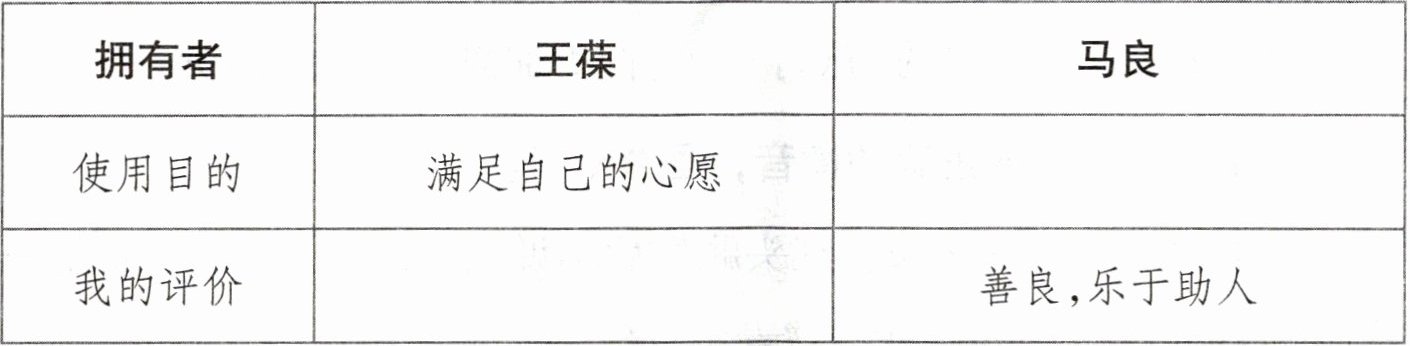 拥有者 王葆 马良
使用目的 满足自己的心愿
我的评价 善良,乐于助人